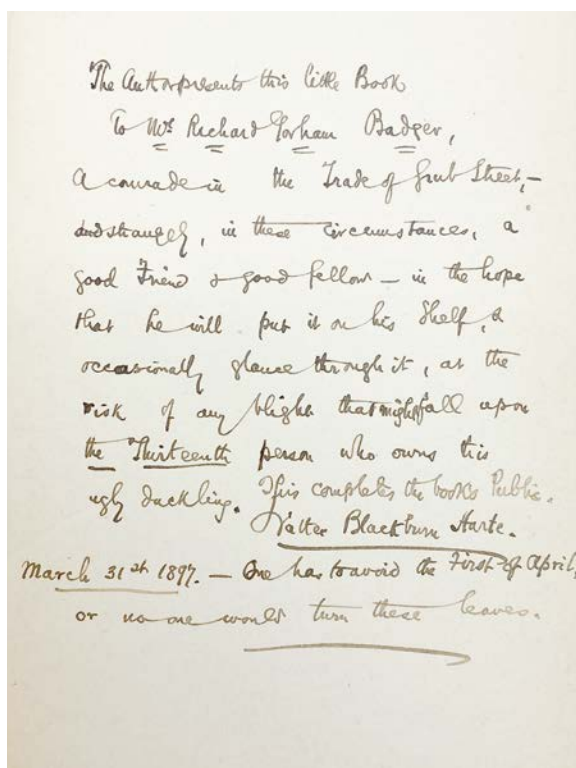 The Author presents this little Book
To Mr. Richard Gorham Badger,
A comrade in the Trade of Grub Street, –
and strangely, in these circumstances, a
good Friend & good fellow – in the hope
that he will put it on his Shelf, &
occasionally glance through it, at the
risk of any blight that might fall upon
the Thirteenth person who owns this
ugly duckling. This completes the book's Public.
Walter Blackburn Harte.
March 31st 1897. – One has to avoid the First of April,
or no one would turn these leaves.